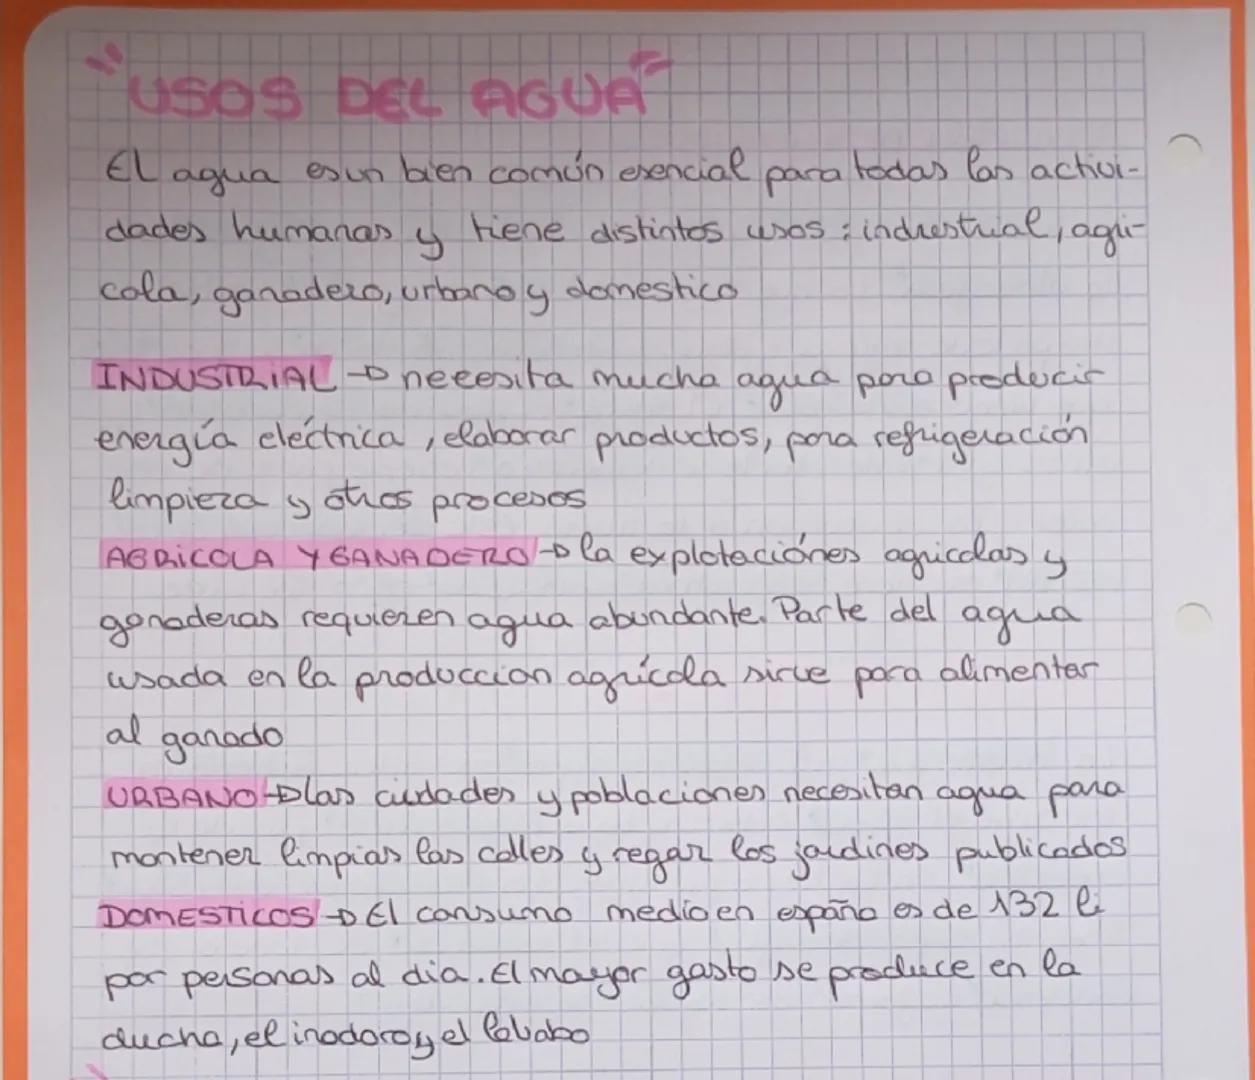 "USOS DEL AGUA"
El agua es un bien común esencial para todas las activi-
dades humanas y tiene distintos usos: industrial, agrí-
cola, ganadero, urbano y domestico
INDUSTRIAL → necesita mucha agua para producir
energía eléctrica, elaborar productos, para refrigeración
limpieza y otros procesos
AGRICOLA Y GANADERO → la explotaciónes agricolas y
ganaderas requieren agua abundante. Parte del agua
usada en la produccion agrícola sirve para alimentar
al ganado
URBANO → las ciudades y poblaciones necesitan agua para
mantener limpias las calles y regar los jardines publicados
DOMESTICOS → El consumo medio en españa es de 132 li
por personas al dia. El mayor gasto se produce en la
ducha, el inodoro y el lavabo